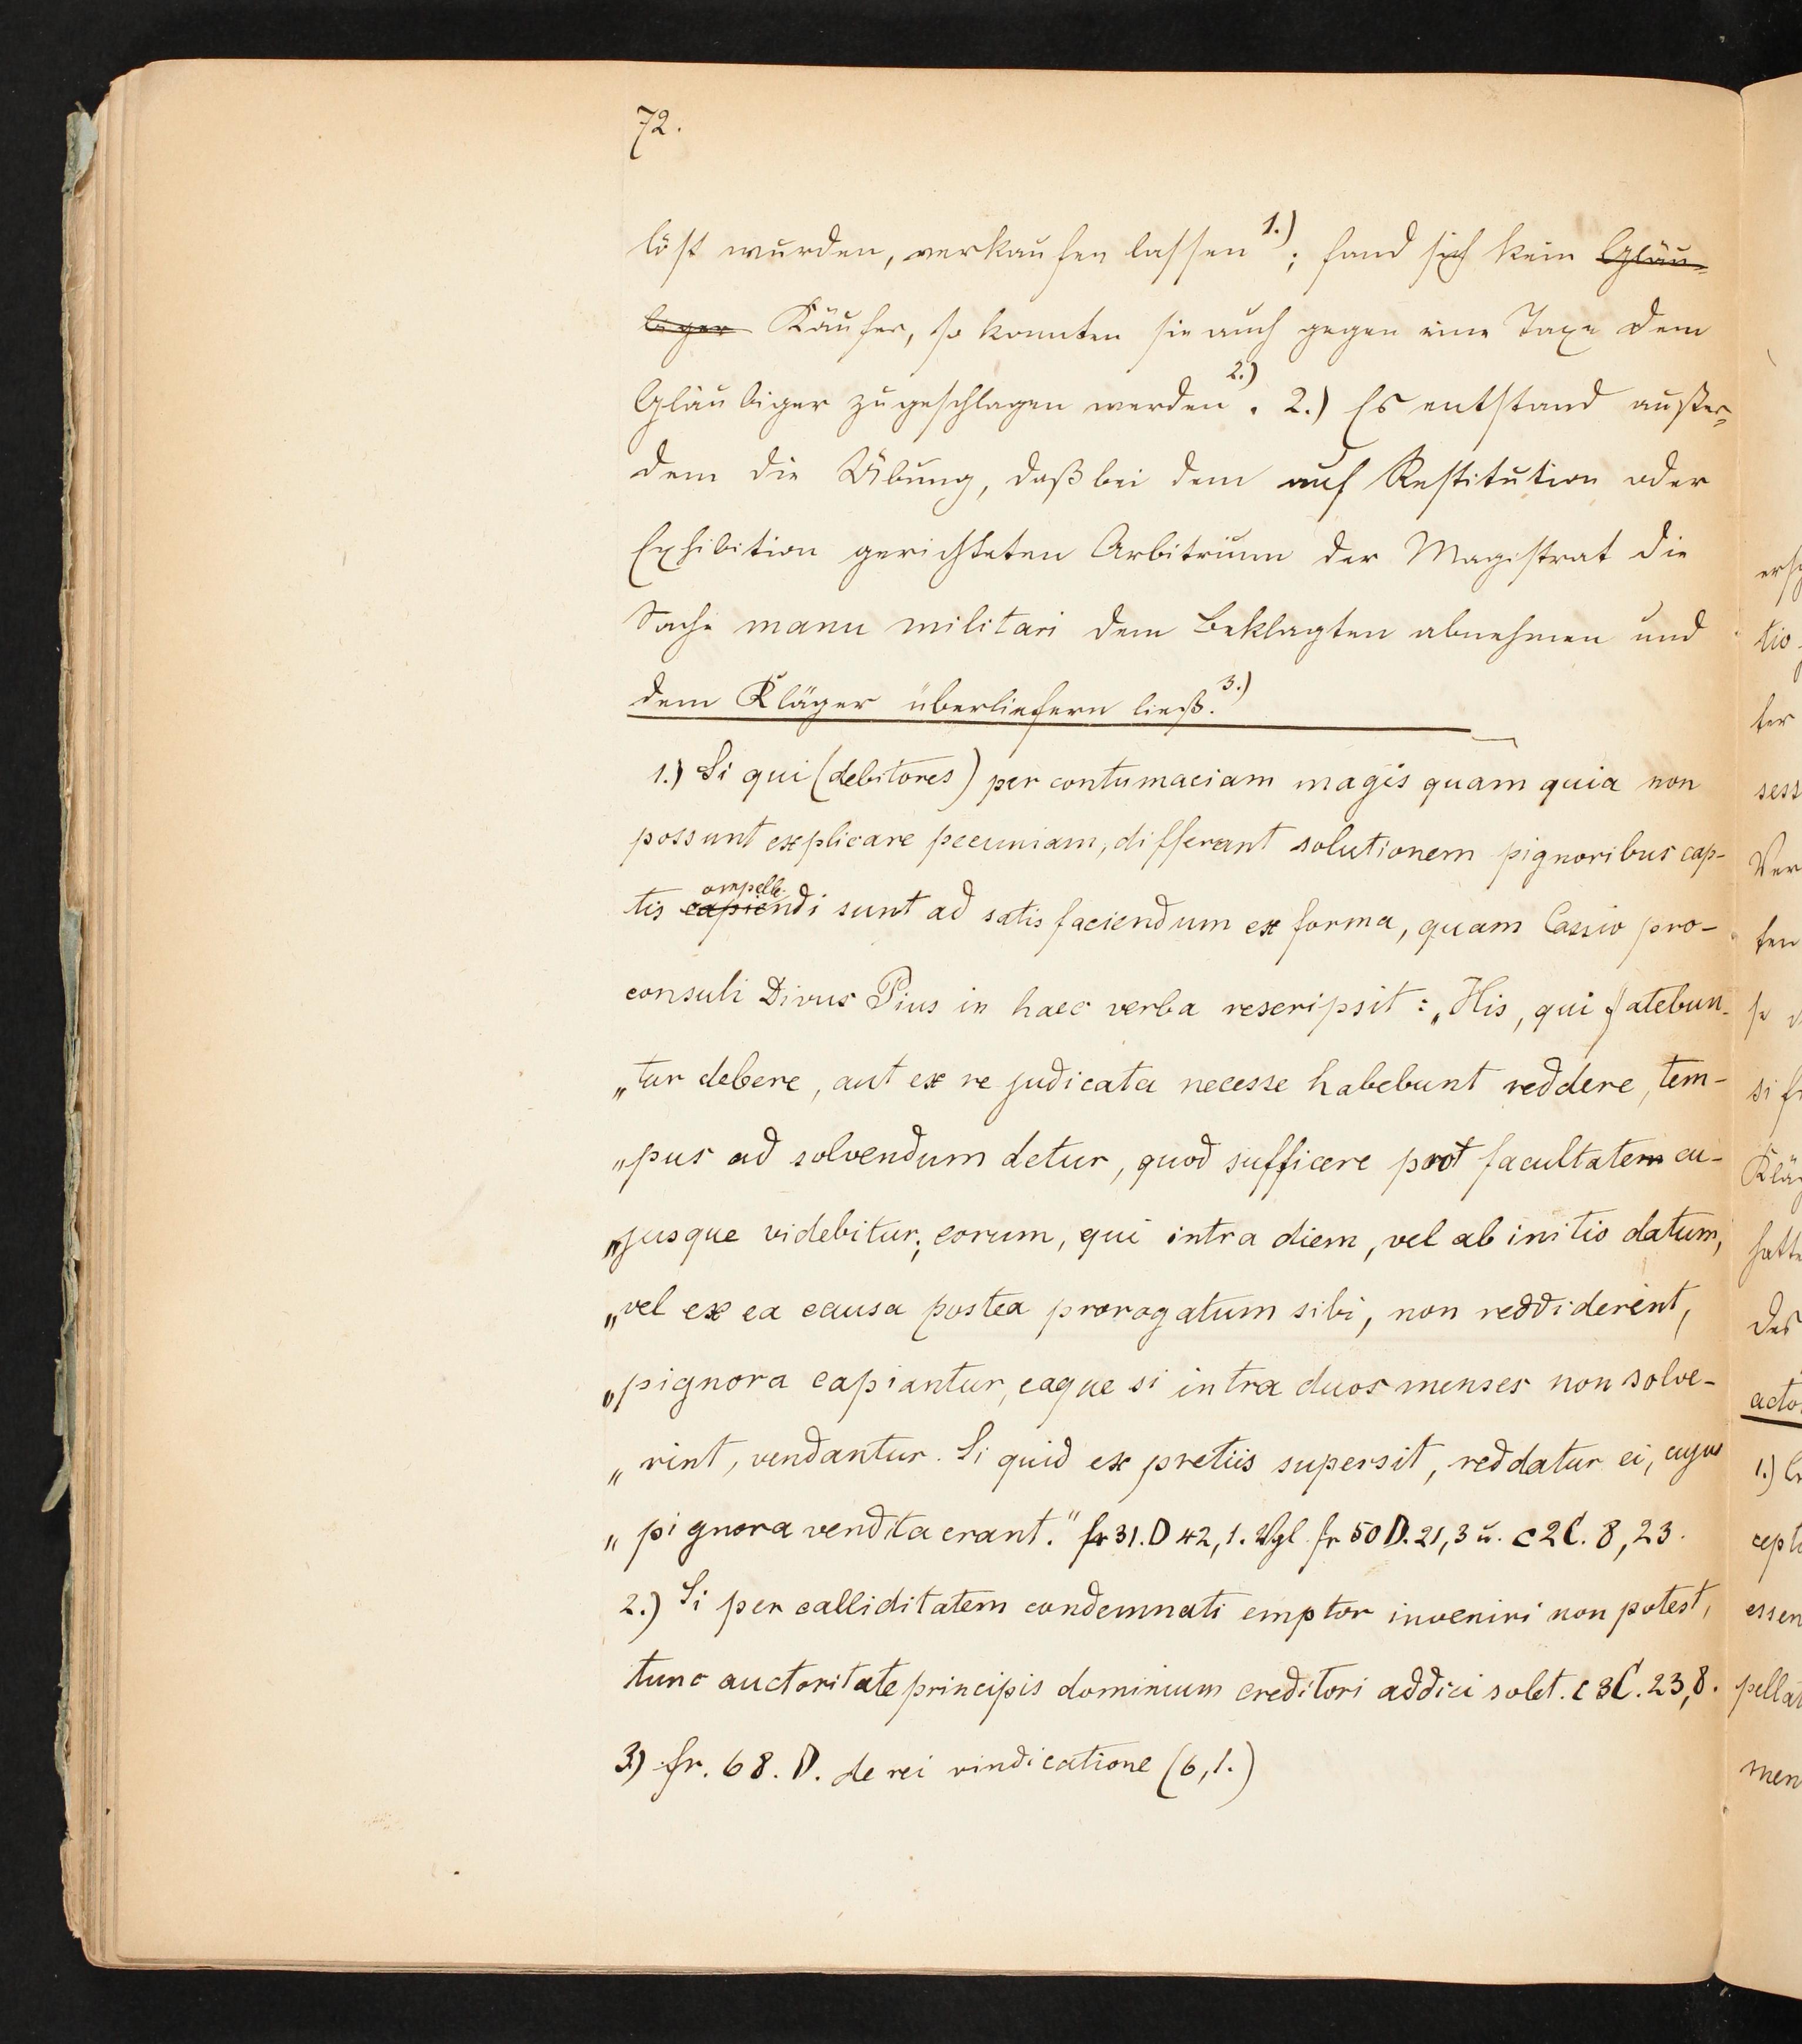 72.
löst wurden, verkaufen lassen 1.); fand sich kein Gläu-
biger Käufer, so konnten sie auch gegen eine Taxe dem
Gläubiger zugeschlagen werden 2.). 2.) Es entstand außer-
dem die Übung, daß bei dem auf Restitution oder
Exhibition gerichteten Arbitrium der Magistrat die
Sache manu militari dem Beklagten abnehmen und
dem Kläger überliefern ließ. 3.)
1.) Si qui (debitores) per contumaciam magis quam quia non
possunt explicare pecuniam, differant solutionem pignoribus cap-
ompelle
tis capiendi sunt ad satis faciendum ex forma, quam Cassio pro-
consuli Divus Pius in haec verba rescripsit: „His, qui fatebun-
„tur debere, aut ex re judicata necesse habebunt reddere, tem-
„pus ad solvendum detur, quod sufficere prot facultatem cu-
„jusque videbitur; eorum, qui intra diem, vel ab initio datum,
„vel ex ea causa postea prorogatum sibi, non reddiderint,
„pignora capiantur, eaque si intra duos menses non solve-
„rint, vendantur. Si quid ex pretiis supersit, reddatur ei, cujus
„pignora vendita erant." fr 31. D 42, 1. Vgl. fr 50 D. 21, 3 u. c 2 C. 8, 23.
2.) Si per calliditatem condemnati emptor inveniri non potest,
tunc auctoritate principis dominium creditori addici solet. c 3 C. 23, 8.
3.) fr. 68. D. de rei vindicatione (6, 1.)
tio-
ter
sess
Ver
ten
si fr
Klä
hatte
des
acto
1.)
cepti
essen
pellat
men